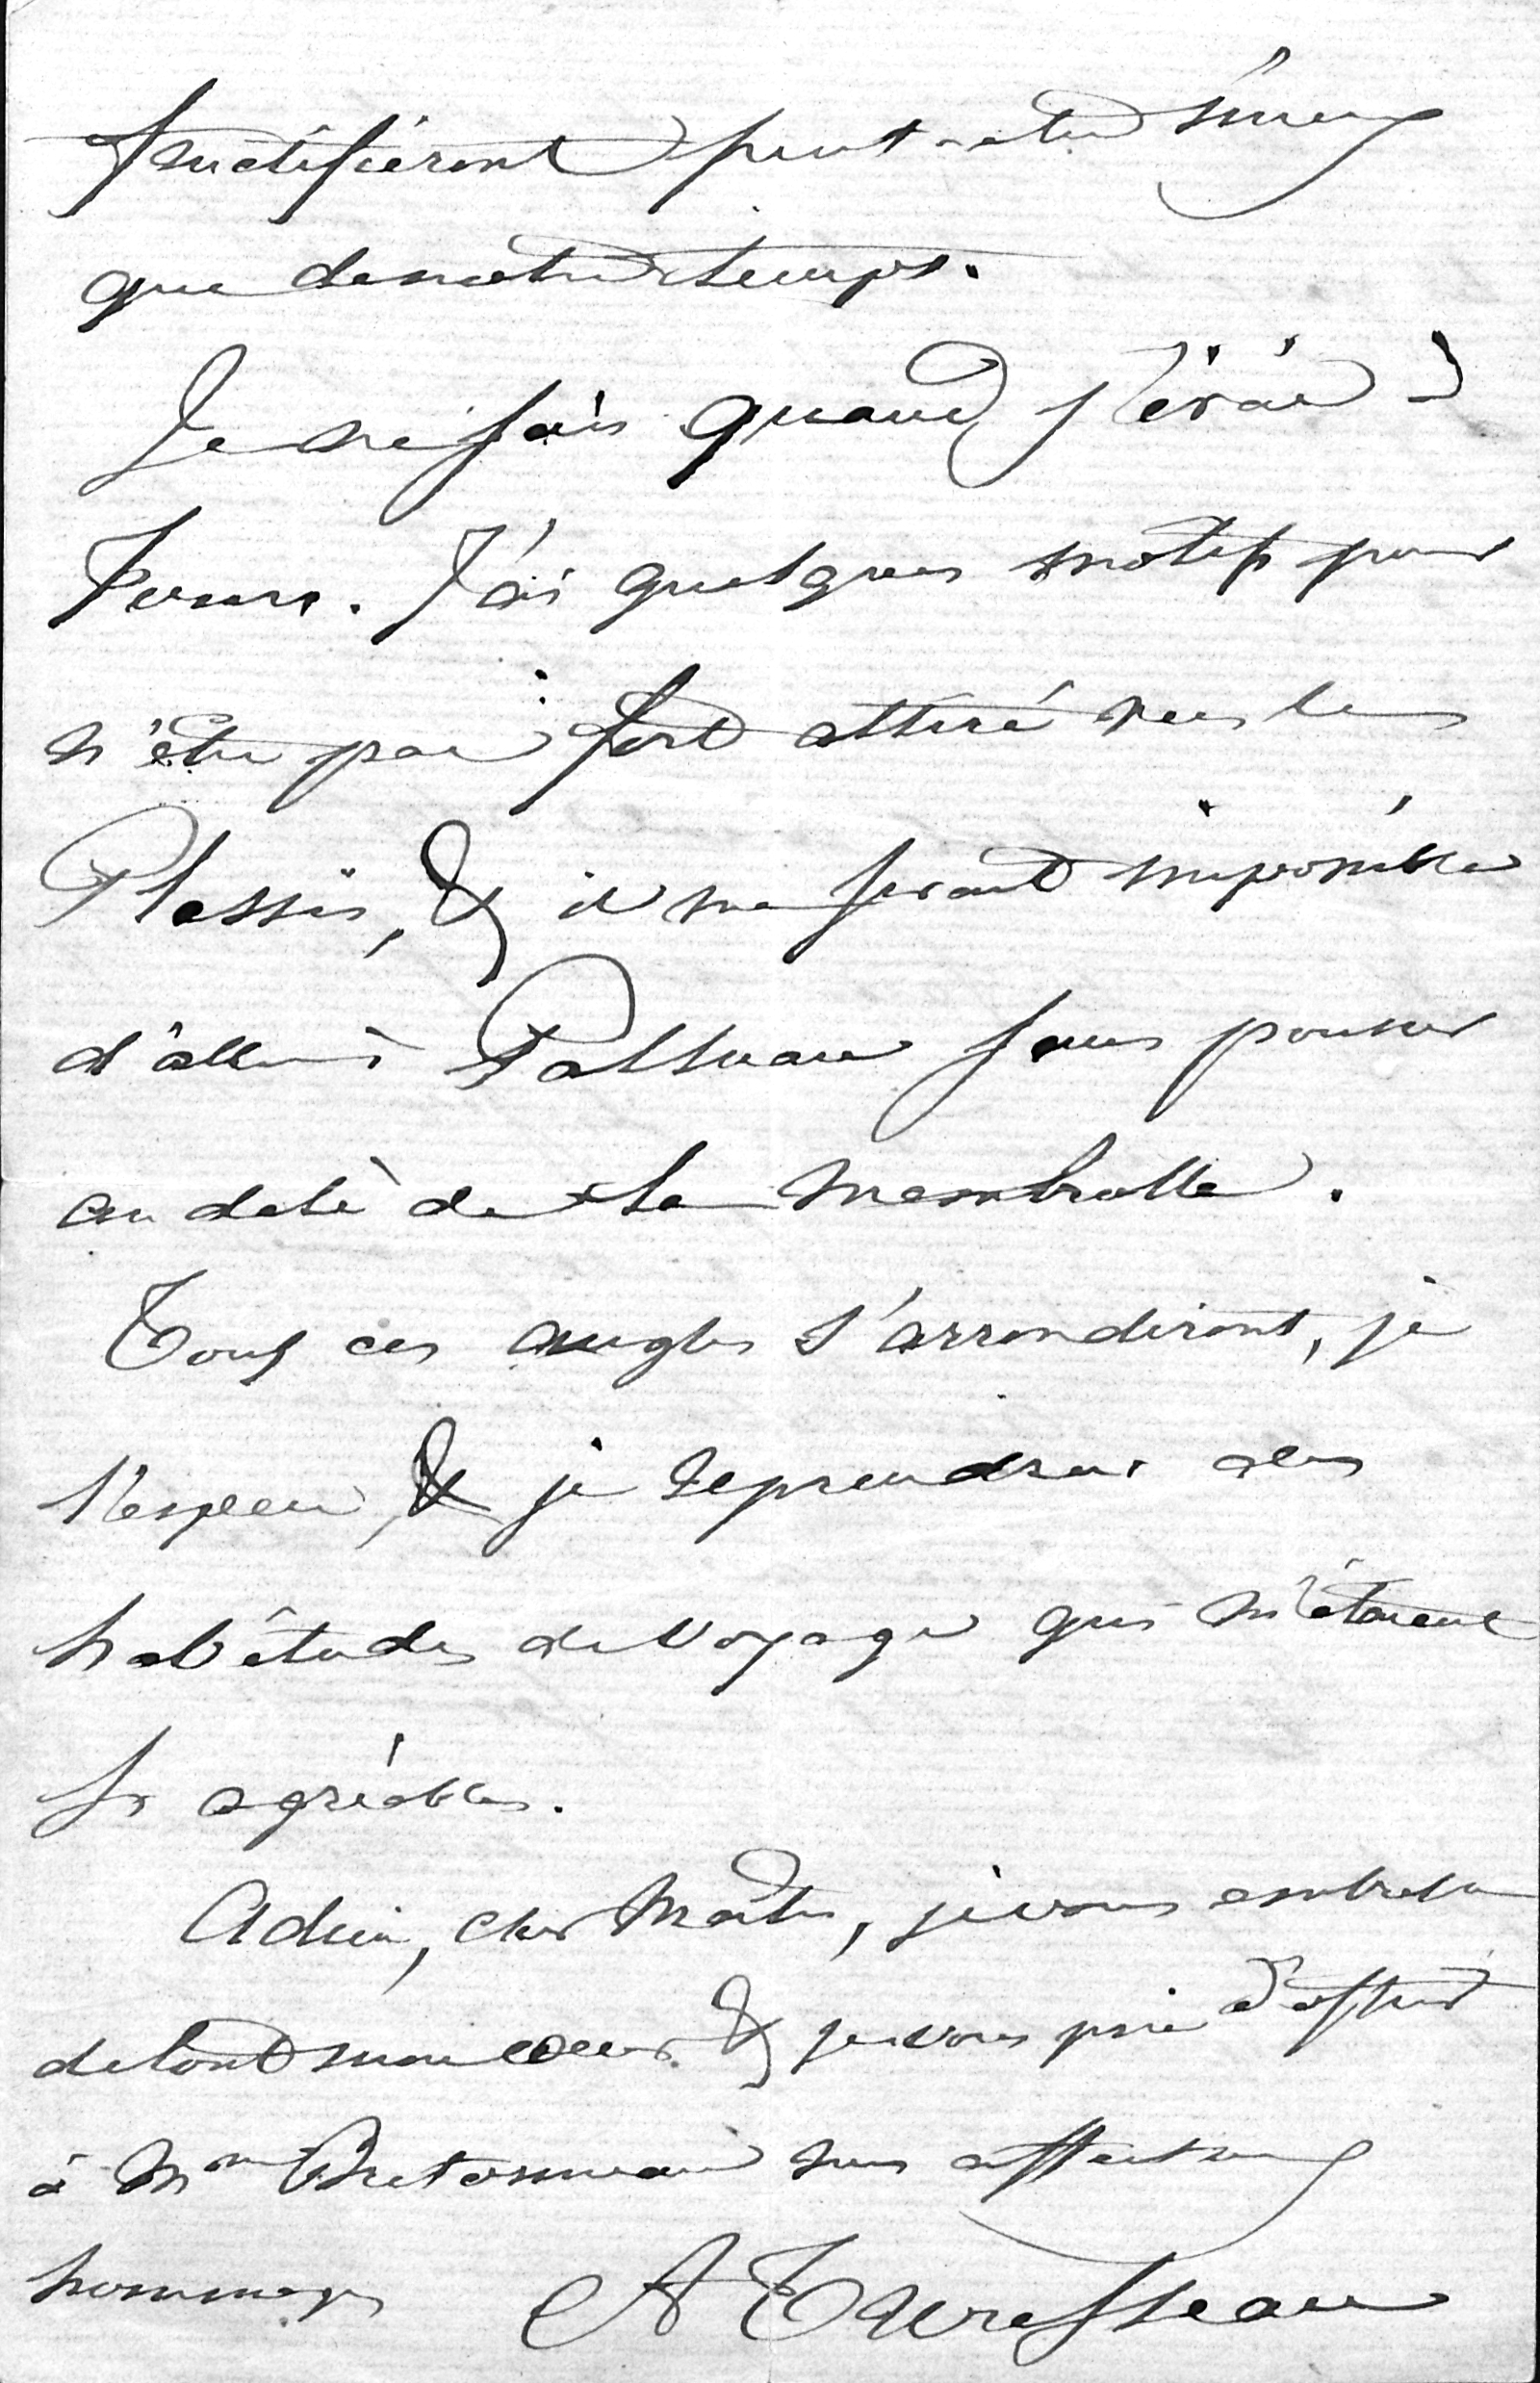 fructifieront peut-être mieux
que de notre temps.
Je ne sais quand j'irai à
Tours. J'ai quelques motifs pour
n'être pas fort attiré vers le
Plessis, & il me serait impossible
d'aller à Palluau sans pousser
au delà de la Membrolle.
Tous ces angles s'arrondiront, je
l'espère, & je reprendrai des
habitudes de voyage qui m'étaient
si agréables.
Adieu, cher Maître, je vous embrasse
de tout mon cœur & je vous prie d'offrir
à Mme Bretonneau mes affectueux
hommages A Trousseau